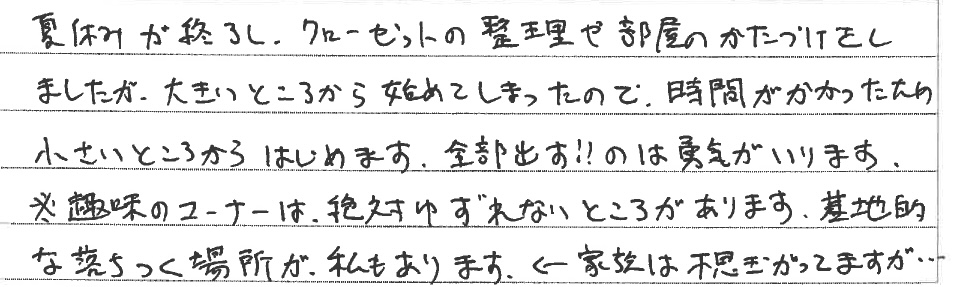 夏休みが終るし、クローゼットの整理や部屋のかたづけをし
ましたが、大きいところから始めてしまったので、時間がかかったため
小さいところからはじめます。全部出す!!のは勇気がいります。
※趣味のコーナーは、絶対ゆずれないところがあります。基地的
な落ちつく場所が、私もあります。←家族は不思ぎがってますが…